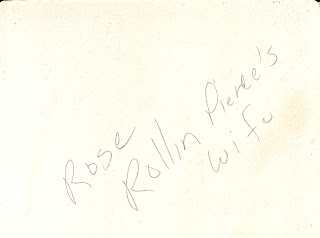 Rose
Rollin Pierce's
wife